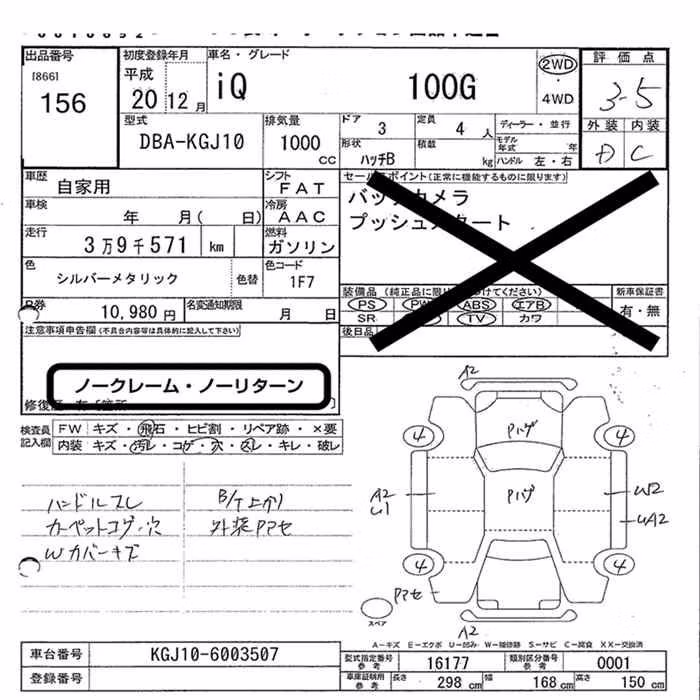 出品番号
[866]
156
初度登録年月
平成
20 12 月
車名・グレード
iQ 100G
2WD
・
4WD
評価点
3-5
外装 内装
D C
型式
DBA-KGJ10
排気量
1000
CC
ドア 3
定員 4 人
形状 ハッチB
積載 kg
ディーラー・並行
モデル年式 年
ハンドル 左・右
車歴
自家用
シフト
FAT
車検
年 月( 日)
冷房
AAC
走行
3万9千571 km
燃料
ガソリン
色
シルバーメタリック
色替
色コード
1F7
R券
10,980 円
名変通知期限
月 日
セールスポイント(正常に機能するものに限ります)
バックカメラ
プッシュスタート
装備品 (純正品に限り 付けてください)
PS PW ABS エアB
SR TV カワ
後日品
新車保証書
有・無
注意事項申告欄(不具合内容等は具体的に記入して下さい)
ノークレーム・ノーリターン
修復歴
検査員
記入欄
FW キズ・飛石・ヒビ割・リペア跡・×要
内装 キズ・汚レ・コゲ・穴・スレ・キレ・破レ
ハンドルスレ
カーペットコゲ・穴
Wカバーキズ
B/T上がり
外装アアセ
A2
4 4
Pハゲ
Pハゲ
A2
U1
W2
UA2
4 4
アアセ
A2
スペア
A－キズ E－エクボ U－凹 W－補修跡 S－サビ C－腐食 XX－交換済
車台番号
KGJ10-6003507
登録番号
型式指定番号
参考
16177
類別区分番号
参考
0001
車庫証明用
参考
長さ 298 cm
幅 168 cm
高さ 150 cm